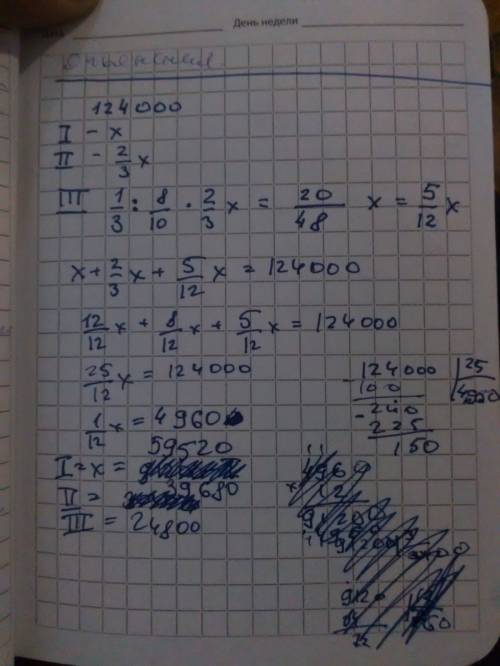 День недели
124000
I - x
II - 2/3 x
III 1/3 : 8/10 · 2/3 x = 20/48 x = 5/12 x
x + 2/3 x + 5/12 x = 124000
12/12 x + 8/12 x + 5/12 x = 124000
25/12 x = 124000
1/12 x = 4960
59520
I = x =
II = 39680
III = 24800
- 124000 | 25
100
- 240
225
150